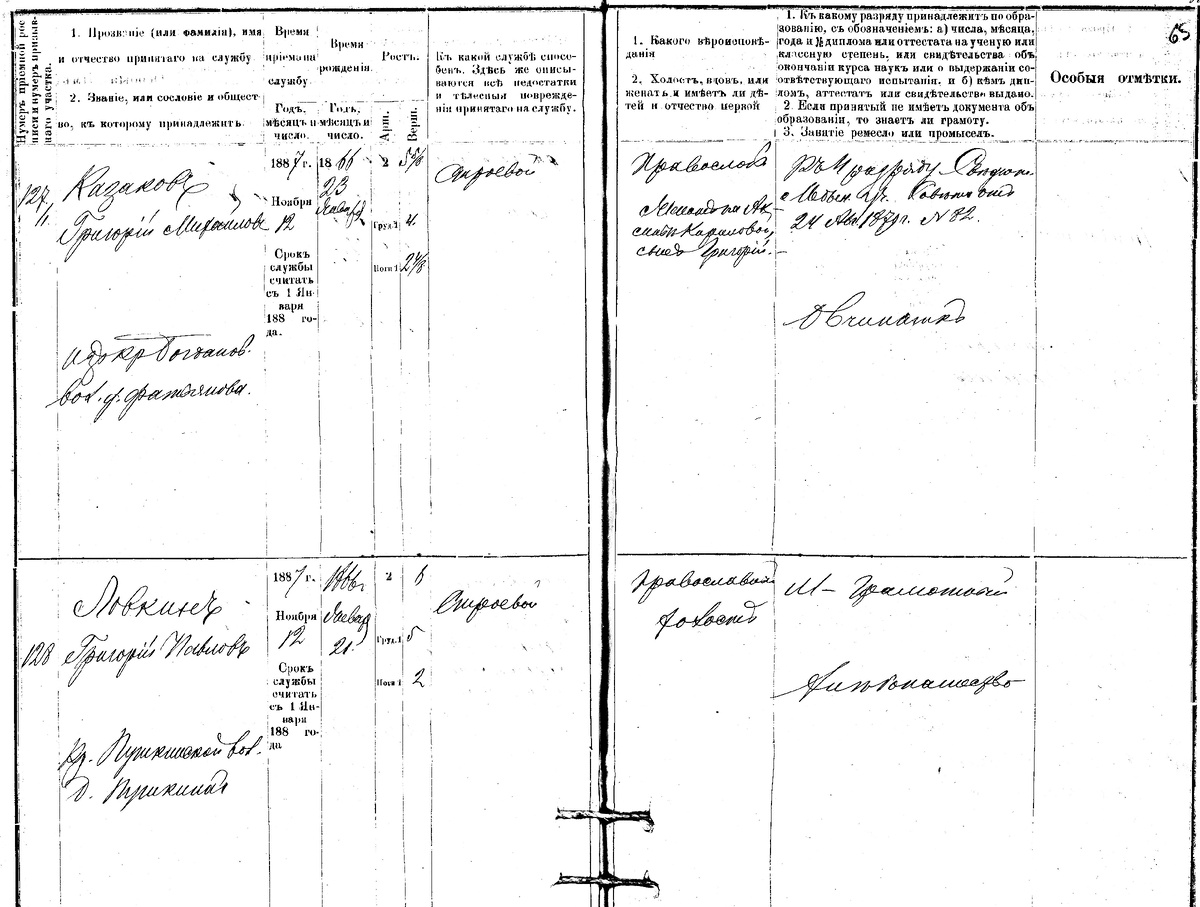 65
Нумеръ пріемной рос
писи и нумеръ призыв-
наго участка.
1. Прозваніе (или фамилія), имя
и отчество принятаго на службу
2. Званіе, или сословіе и общест-
во, къ которому принадлежитъ
Время
пріема на
службу.
Годъ,
мѣсяцъ и
число.
Время
рожденія.
Годъ,
мѣсяцъ и
число.
Ростъ.
Арш.
Верш.
Къ какой службѣ спосо-
бенъ. Здѣсь же описы-
ваются всѣ недостатки
и тѣлесныя поврежде-
нія принятаго на службу.
1. Какого вѣроисповѣ-
данія
2. Холостъ, вдовъ, или
женатъ и имѣетъ ли дѣ-
тей и отчество первой
1. Къ какому разряду принадлежитъ по обра-
зованію, съ обозначеніемъ: а) числа, мѣсяца,
года и № диплома или оттестата на ученую или
классную степень, или свидѣтельства объ
окончаніи курса наукъ или о выдержаніи со-
отвѣтствующаго испытанія. и б) кѣмъ дип-
ломъ, аттестатъ или свидѣтельство выдано.
2. Если принятый не имѣетъ документа объ
образованіи, то знаетъ ли грамоту.
3. Занятіе ремесло или промыселъ.
Особыя отмѣтки.
127
Казаковъ
Григорій Михайловъ
Богданов.
вол. д. Фатьянова.
1887 г.
Ноября
12
Срокъ
службы
считать
съ 1 Ян-
варя
188 го-
да.
1866
23
Января
2 5 5/8
Груд. 1 4
Ноги 1 2 4/8
Строевой
Православн
Григорій.
24 1879 г. № 82.
128
Ловкинъ
Григорій Павловъ
Кр. Пушкинской вол.
д. Пушкина
1887 г.
Ноября
12
Срокъ
службы
считать
съ 1 Ян-
варя
188 го-
да
1866
Января
21.
2 6
Груд. 1 5
Ноги 1 2
Строевой
Православный
Холостъ
Грамотный
Хлѣбопашество